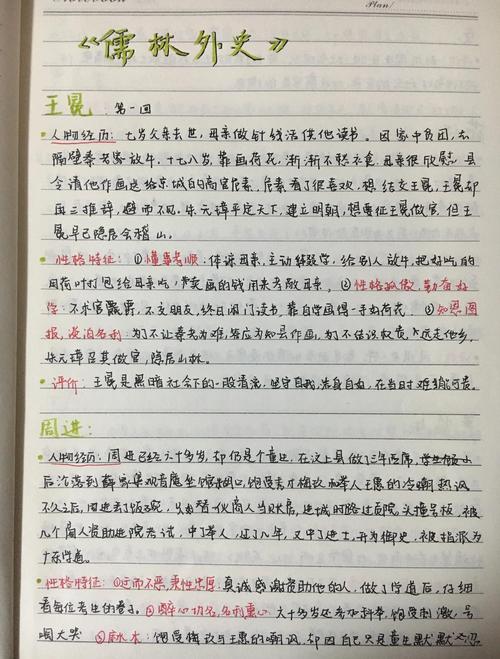 Plan/
《儒林外史》
王冕: 第一回
人物经历: 七岁父亲去世,母亲做针线活供他读书。因家中贫困,去
隔壁秦老家放牛,十七八岁,靠画荷花,渐渐不愁衣食,母亲很欣慰,县
令请他作画送给京城的高官危素,危素看了很喜欢,想结交王冕,王冕却
再三推辞,避而不见。朱元璋平定天下,建立明朝,想要征王冕做官,但王
冕早已隐居会稽山。
性格特征: ①懂事孝顺: 体谅母亲,主动辍学,给别人放牛,把好吃的
用荷叶打包给母亲吃,卖画的钱用来孝敬母亲,②性格孤傲,勤奋好
学: 不求官爵,不交朋友,终日闭门读书,靠自学画得一手好荷花,③知恩图
报,淡泊名利: 为了不让秦老为难,答应为知县作画,为了不结识权贵,远走他乡,
朱元璋召其做官,隐居山林。
评价: 王冕是黑暗社会下的一股清流,坚守自我,洁身自好,在当时难能可贵。
周进:
人物经历: 周进已经六十多岁,却仍是个童生,在汶上县做了三年西席,
后沦落到薛家集观音庵坐馆糊口,饱受秀才梅玖和举人王惠的冷嘲热讽
不久之后,周进丢了饭碗,替一伙商人当账房,进城时路过贡院,头撞号板,被
几个商人资助进院考试,中了举人,过了几年,又中了进士,升为御史,被指派为
广东学道。
性格特征: 真诚感谢资助他的人,做了学道后,仔细
看每位考生的卷子。②醉心功名, 六十多岁还参加科举,饱受刺激,号
啕大哭 ③麻木: 饱受梅玖与王惠的嘲讽,却因自己只是童生默默